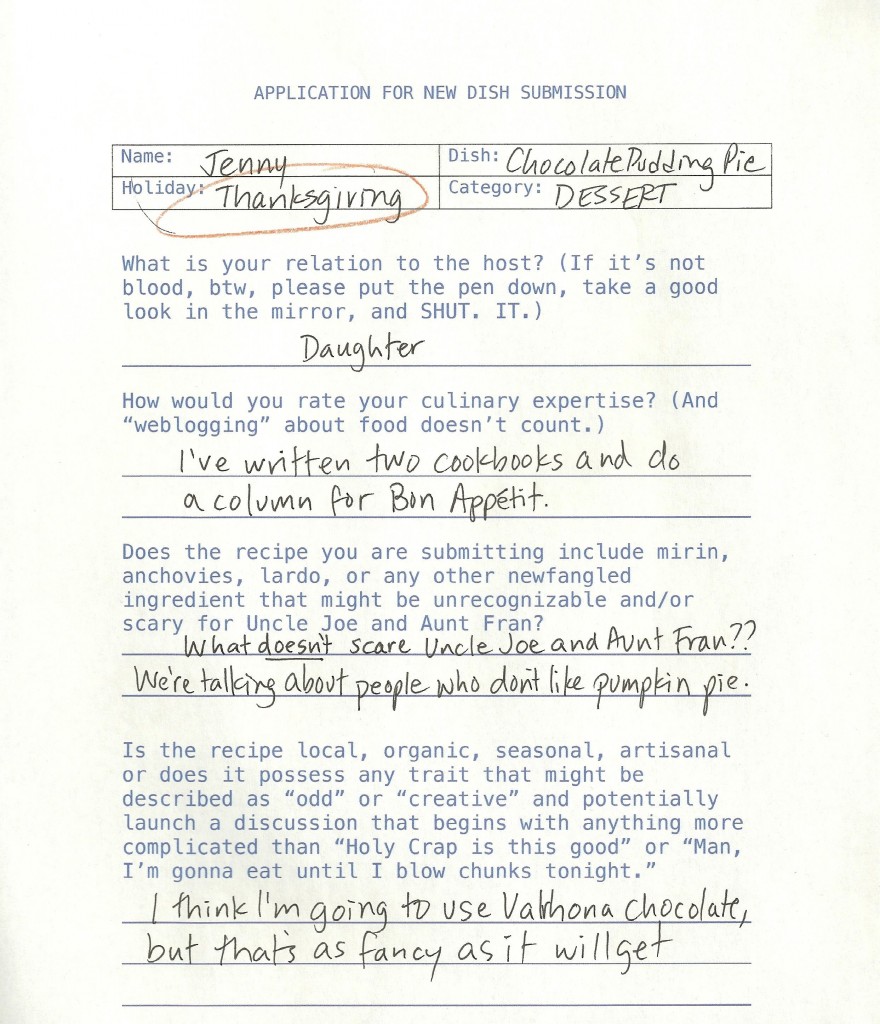 APPLICATION FOR NEW DISH SUBMISSION
Name: Jenny Dish: Chocolate Pudding Pie
Holiday: Thanksgiving Category: DESSERT
What is your relation to the host? (If it's not
blood, btw, please put the pen down, take a good
look in the mirror, and SHUT. IT.)
Daughter
How would you rate your culinary expertise? (And
“weblogging” about food doesn't count.)
I've written two cookbooks and do
a column for Bon Appétit.
Does the recipe you are submitting include mirin,
anchovies, lardo, or any other newfangled
ingredient that might be unrecognizable and/or
scary for Uncle Joe and Aunt Fran?
What doesn't scare Uncle Joe and Aunt Fran??
We're talking about people who don't like pumpkin pie.
Is the recipe local, organic, seasonal, artisanal
or does it possess any trait that might be
described as “odd” or “creative” and potentially
launch a discussion that begins with anything more
complicated than “Holy Crap is this good” or “Man,
I'm gonna eat until I blow chunks tonight.”
I think I'm going to use Valrhona chocolate,
but that's as fancy as it will get